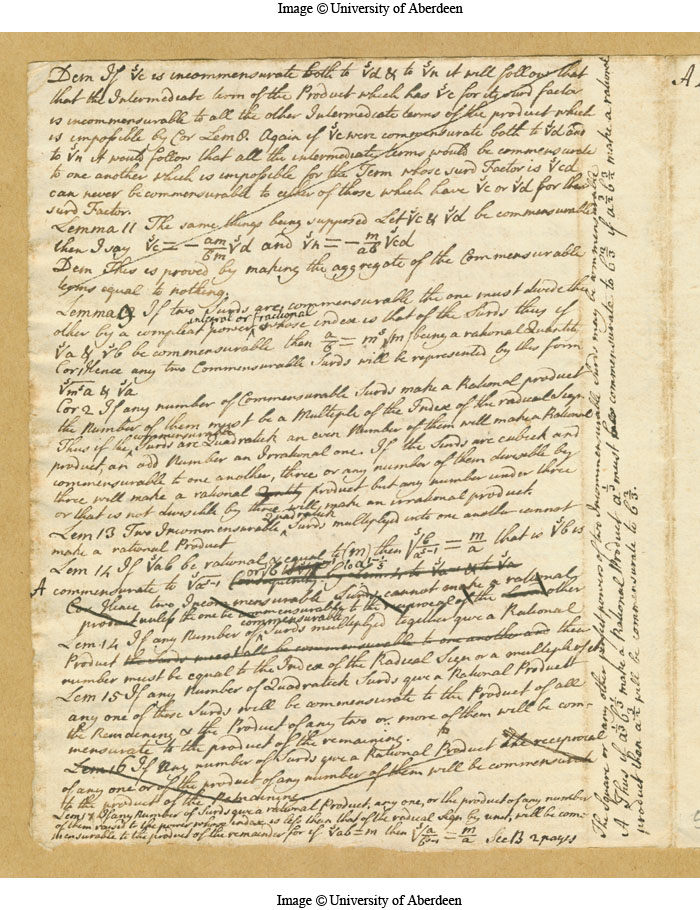 Image © University of Aberdeen
Dem If ⁵√c is incommensurate both to ⁵√d & to ⁵√n it will follow that
that the Intermediate term of the Product which has ⁵√c for its surd factor
is incommensurable to all the other Intermediate terms of the product which
is impossible by Cor Lem 8. Again if ⁵√c were commensurate both to ⁵√d and
to ⁵√n it would follow that all the intermediate terms would be commensurate
to one another which is impossible for the Term whose surd Factor is ⁵√cd
can never be commensurable to either of those which have ⁵√c or ⁵√d for their
surd Factor.
Lemma 11 The same things being supposed Let ⁵√c & ⁵√d be commensurable
then I say ⁵√c = - am/bm ⁵√d and ⁵√n = - m/ab ⁵√cd
Dem This is proved by making the aggregate of the Commensurable
terms equal to nothing.
Lemma If two Surds are commensurable the one must divide the
other by a compleat integral or fractional power, whose index is that of the Surds thus if
⁵√a & ⁵√b be commensurable then a/b = m⁵, (m being a rational
Cor 1 Hence any two Commensurable Surds will be represented by this form
⁵√m⁵a & ⁵√a
Cor 2 If any number of Commensurable Surds make a Rational product
the Number of them must be a Multiple of the Index of the radical Sign.
Thus if the commensurable Surds are Quadratick an even Number of them will make a Rational
product an odd Number an Irrational one. If the Surds are cubick and
commensurable to one another, three or any number of them divisible by
three will make a rational product but any number under three
or that is not divisible by three will make an irrational product.
Lem 13 Two Incommensurable Quadratick Surds multiplyed into one another cannot
make a rational Product
Lem 14 If ⁵√ab be rational & equal to (m) then ⁵√b/a⁵⁻¹ = m/a that is ⁵√b is
A commensurate to ⁵√a⁵⁻¹
Cor Hence two Incommensurable Surds cannot make a rational
product unless the one be commensurable to the reciprocal of the other
Lem 14 If any Number of commensurable Surds multiplyed together give a Rational
Product the Surds must all be commensurable to one another and their
number must be equal to the Index of the Radical Sign or a multiple of it
Lem 15 If any Number of Quadratick Surds give a Rational Product
any one of these Surds will be commensurate to the Product of all
the Remaining & the Product of any two or more of them will be com-
mensurate to the product of the remaining.
Lem 16 If any number of Surds give a Rational Product The reciprocal
of any one or of the product of any number of them will be commensurate
to the product of the Remaining
Lem If any Number of Surds give a rational Product, any one, or the product of any number
of them raised to the power whose index is less than that of the radical sign by unit, will be com-
mensurable to the product of the remainder for if ⁵√ab = m then ⁵√a/b⁵⁻¹ = m/b See 13 2 pages
The Square or any other perfect powers of two Incommensurable Surds may be commensurable
A Thus if a⅓ b⅓ make a Rational Product a⅓ must be commensurate to b⅔ if a½ b½ make a rational
product then a½ will be commensurate to b½.
A
Image © University of Aberdeen